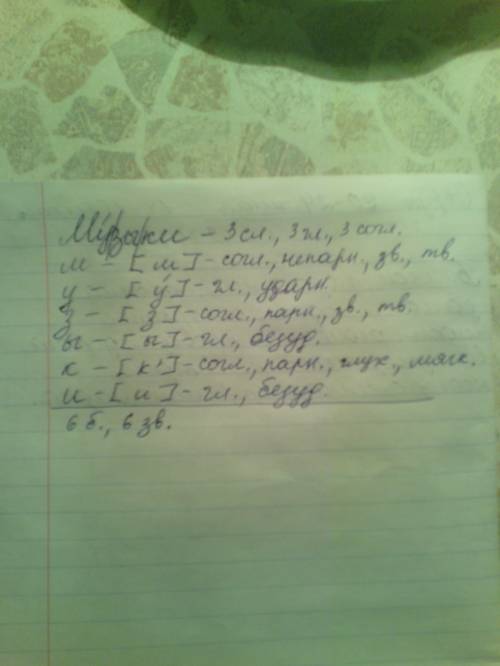 Музыки - 3 сл., 3 гл., 3 согл.
м - [м] - согл., непарн., зв., тв.
у - [у́] - гл., ударн.
з - [з] - согл., парн., зв., тв.
ы - [ы] - гл., безуд.
к - [к'] - согл., парн., глух., мягк.
и - [и] - гл., безуд.
6 б., 6 зв.